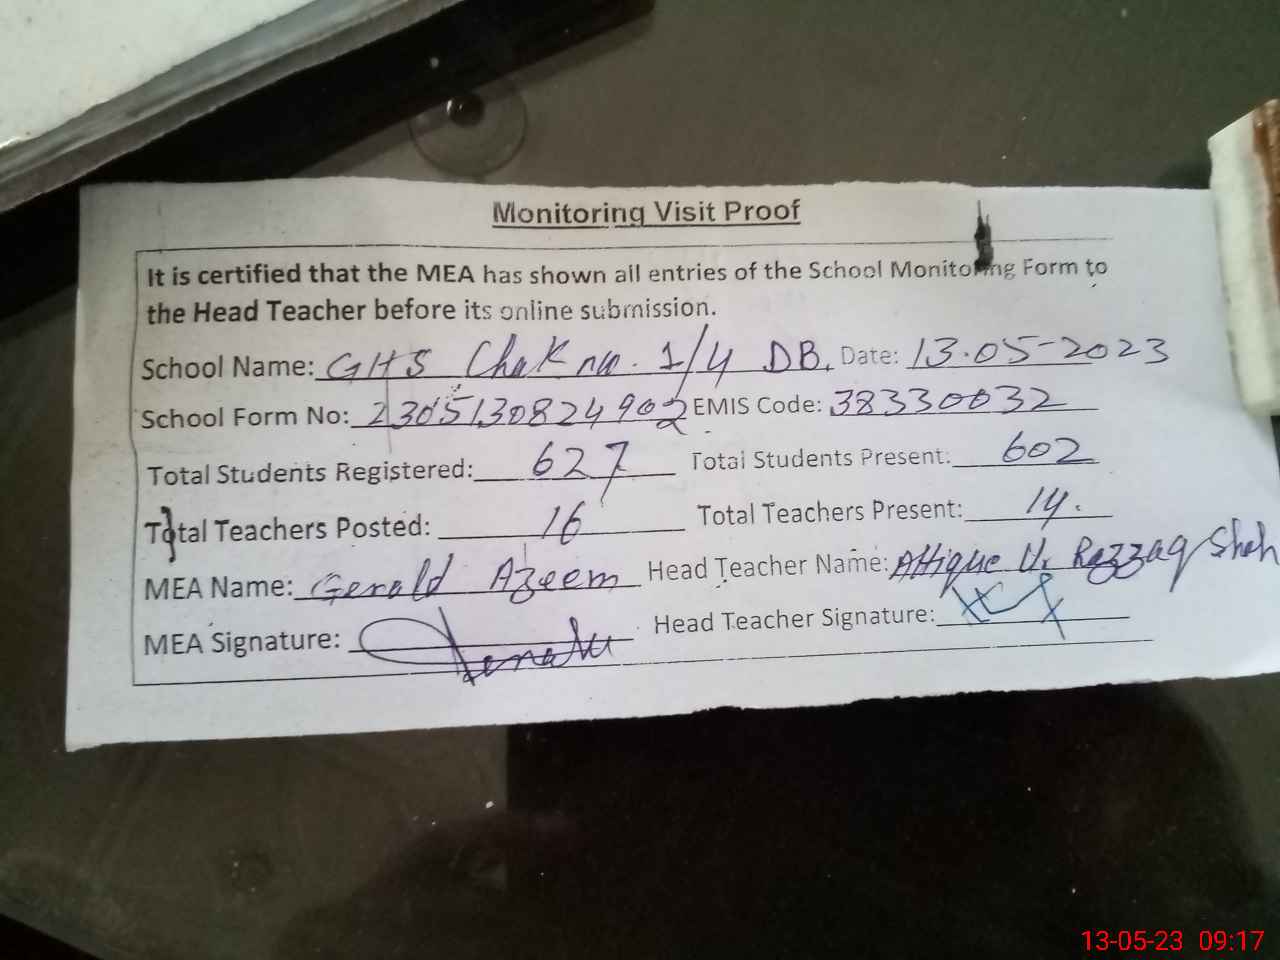 Monitoring Visit Proof
It is certified that the MEA has shown all entries of the School Monitoring Form to
the Head Teacher before its online submission.
School Name: GHS Chak no. 1/4 DB. Date: 13-05-2023
School Form No: 2305130824902 EMIS Code: 38330032
Total Students Registered: 627 Total Students Present: 602
Total Teachers Posted: 16 Total Teachers Present: 14.
MEA Name: Gerald Azeem Head Teacher Name: Attique Ur Razzaq Shah
MEA Signature: Head Teacher Signature:
13-05-23 09:17